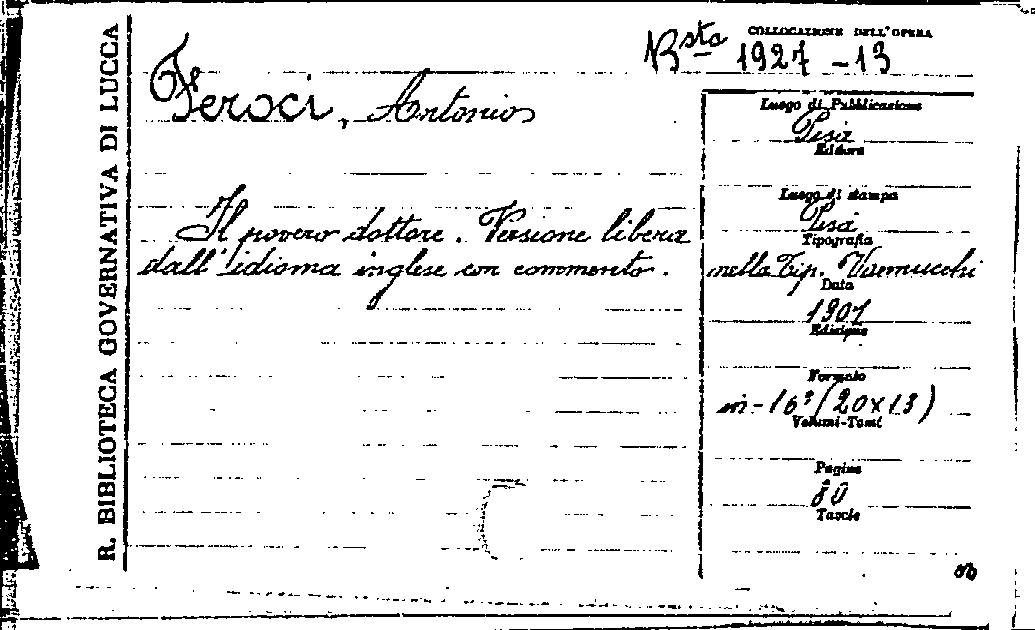 R. BIBLIOTECA GOVERNATIVA DI LUCCA
COLLOCAZIONE DELL'OPERA
Bsta 1927-13
Feroci, Antonio
Il povero dottore. Versione libera
dall'idioma inglese con commento.
Luogo di Pubblicazione
Pisa
Editore
Luogo di stampa
Pisa
Tipografia
nella Tip. Vannucchi
Data
1907
Edizione
Formato
in-16° (20x13)
Volumi-Tomi
Pagine
80
Tavole